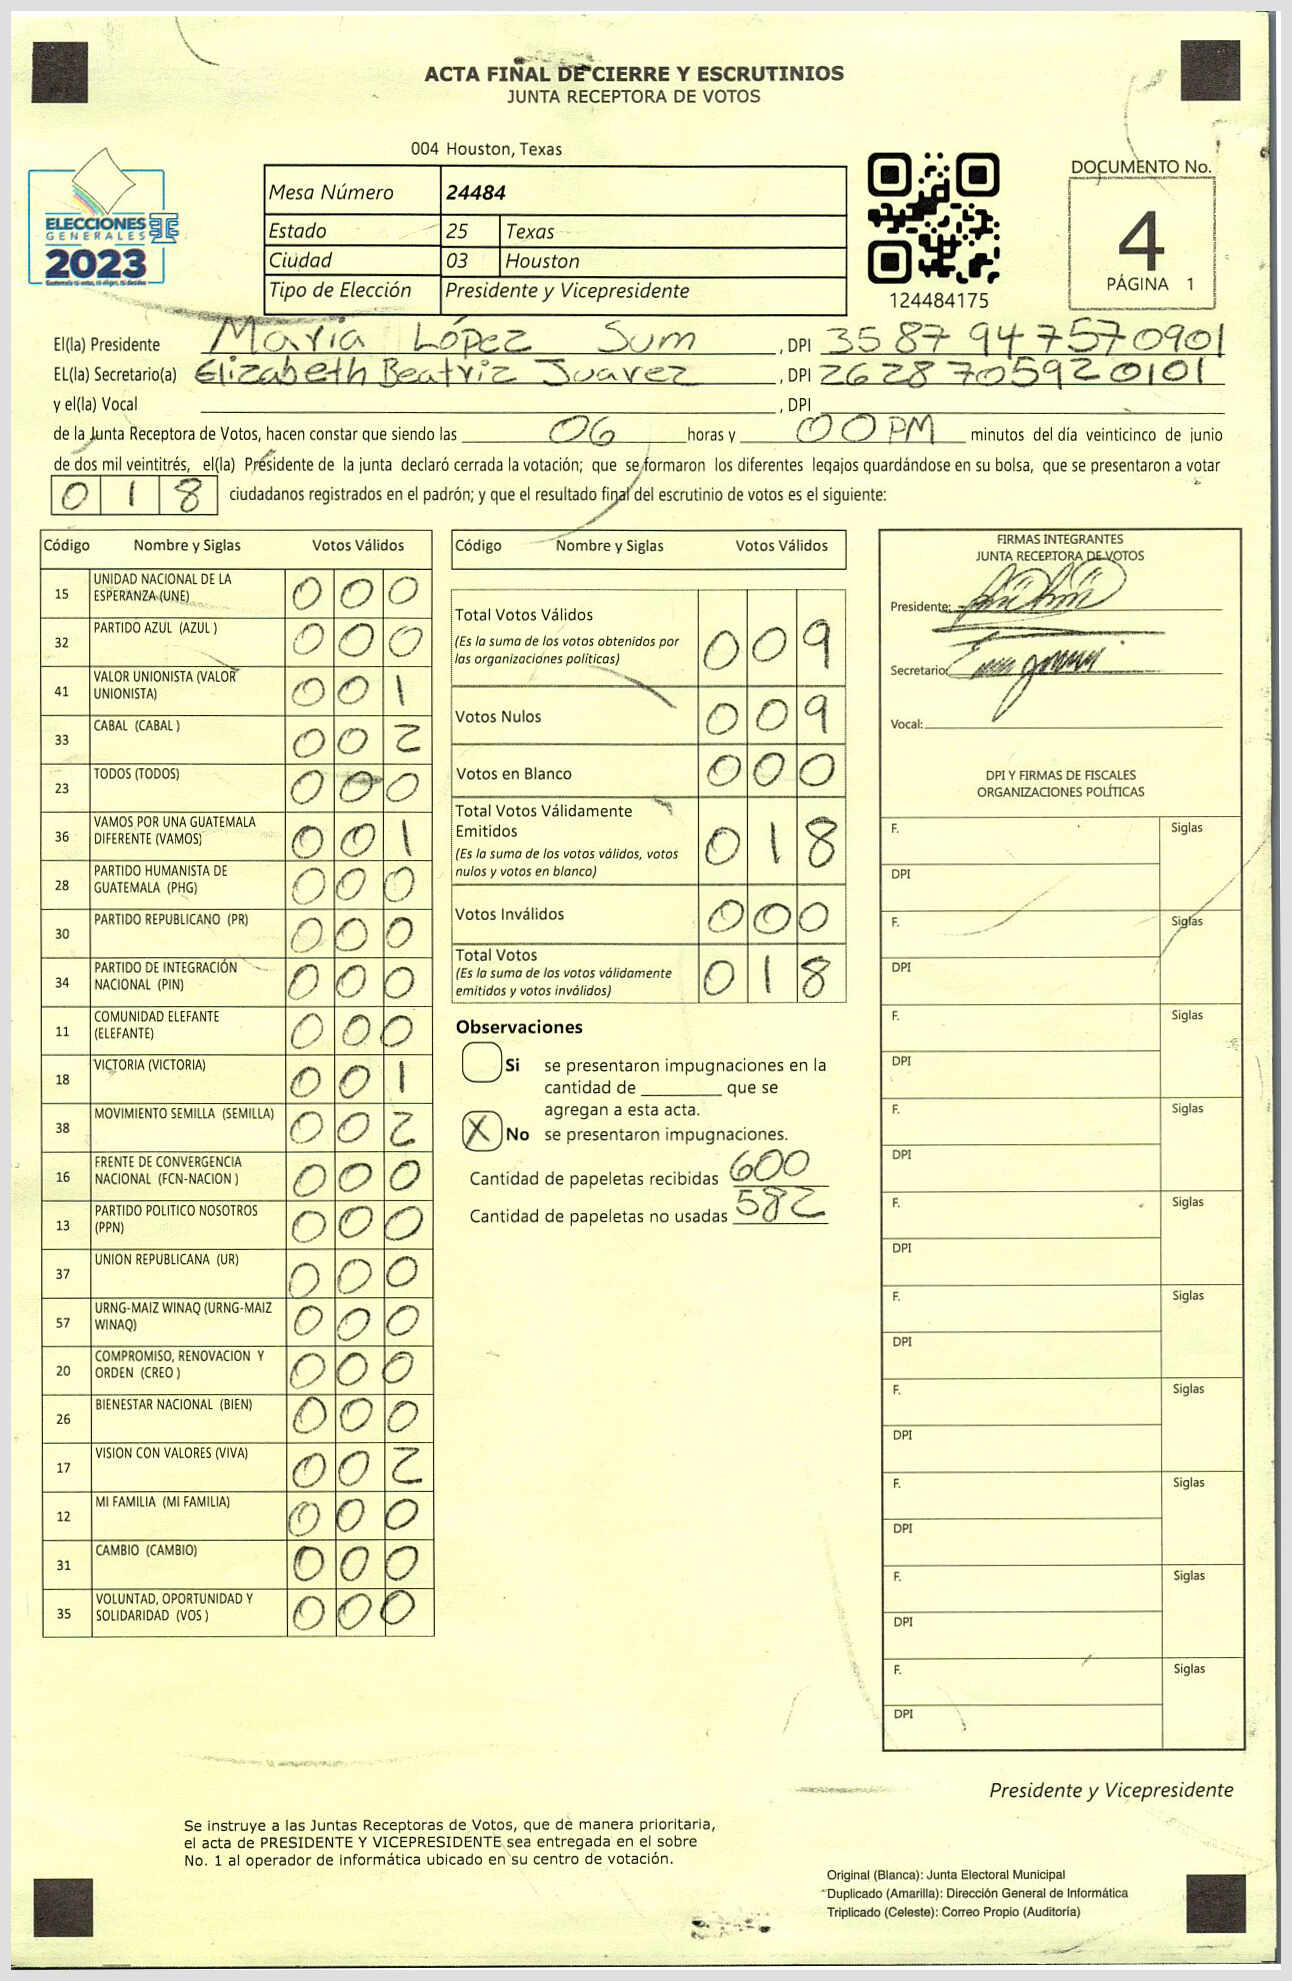 ACTA FINAL DE CIERRE Y ESCRUTINIOS
JUNTA RECEPTORA DE VOTOS
004 Houston, Texas
ELECCIONES
GENERALES
2023
Mesa Número 24484
Estado 25 Texas
Ciudad 03 Houston
Tipo de Elección Presidente y Vicepresidente
124484175
DOCUMENTO No.
4
PÁGINA 1
El(la) Presidente Maria López Sum, DPI 3587947570901
EL(la) Secretario(a) Elizabeth Beatriz Juarez, DPI 2628705920101
y el(la) Vocal , DPI
de la Junta Receptora de Votos, hacen constar que siendo las 06 horas y 00 PM minutos del día veinticinco de junio
de dos mil veintitrés, el(la) Présidente de la junta declaró cerrada la votación; que se formaron los diferentes legajos guardándose en su bolsa, que se presentaron a votar
0 1 8 ciudadanos registrados en el padrón; y que el resultado final del escrutinio de votos es el siguiente:
Código Nombre y Siglas Votos Válidos
15 UNIDAD NACIONAL DE LA ESPERANZA (UNE) 0 0 0
32 PARTIDO AZUL (AZUL ) 0 0 0
41 VALOR UNIONISTA (VALOR UNIONISTA) 0 0 1
33 CABAL (CABAL ) 0 0 2
23 TODOS (TODOS) 0 0 0
36 VAMOS POR UNA GUATEMALA DIFERENTE (VAMOS) 0 0 1
28 PARTIDO HUMANISTA DE GUATEMALA (PHG) 0 0 0
30 PARTIDO REPUBLICANO (PR) 0 0 0
34 PARTIDO DE INTEGRACIÓN NACIONAL (PIN) 0 0 0
11 COMUNIDAD ELEFANTE (ELEFANTE) 0 0 0
18 VICTORIA (VICTORIA) 0 0 1
38 MOVIMIENTO SEMILLA (SEMILLA) 0 0 2
16 FRENTE DE CONVERGENCIA NACIONAL (FCN-NACION ) 0 0 0
13 PARTIDO POLITICO NOSOTROS (PPN) 0 0 0
37 UNION REPUBLICANA (UR) 0 0 0
57 URNG-MAIZ WINAQ (URNG-MAIZ WINAQ) 0 0 0
20 COMPROMISO, RENOVACION Y ORDEN (CREO ) 0 0 0
26 BIENESTAR NACIONAL (BIEN) 0 0 0
17 VISION CON VALORES (VIVA) 0 0 2
12 MI FAMILIA (MI FAMILIA) 0 0 0
31 CAMBIO (CAMBIO) 0 0 0
35 VOLUNTAD, OPORTUNIDAD Y SOLIDARIDAD (VOS ) 0 0 0
Código Nombre y Siglas Votos Válidos
Total Votos Válidos 0 0 9
(Es la suma de los votos obtenidos por
las organizaciones políticas)
Votos Nulos 0 0 9
Votos en Blanco 0 0 0
Total Votos Válidamente
Emitidos 0 1 8
(Es la suma de los votos válidos, votos
nulos y votos en blanco)
Votos Inválidos 0 0 0
Total Votos 0 1 8
(Es la suma de los votos válidamente
emitidos y votos inválidos)
Observaciones
Si se presentaron impugnaciones en la
cantidad de ________ que se
agregan a esta acta.
X No se presentaron impugnaciones.
Cantidad de papeletas recibidas 600
Cantidad de papeletas no usadas 582
FIRMAS INTEGRANTES
JUNTA RECEPTORA DE VOTOS
Presidente:
Secretario:
Vocal:
DPI Y FIRMAS DE FISCALES
ORGANIZACIONES POLÍTICAS
F. Siglas
DPI
F. Siglas
DPI
F. Siglas
DPI
F. Siglas
DPI
F. Siglas
DPI
F. Siglas
DPI
F. Siglas
DPI
F. Siglas
DPI
F. Siglas
DPI
F. Siglas
DPI
Presidente y Vicepresidente
Se instruye a las Juntas Receptoras de Votos, que de manera prioritaria,
el acta de PRESIDENTE Y VICEPRESIDENTE sea entregada en el sobre
No. 1 al operador de informática ubicado en su centro de votación.
Original (Blanca): Junta Electoral Municipal
Duplicado (Amarilla): Dirección General de Informática
Triplicado (Celeste): Correo Propio (Auditoría)